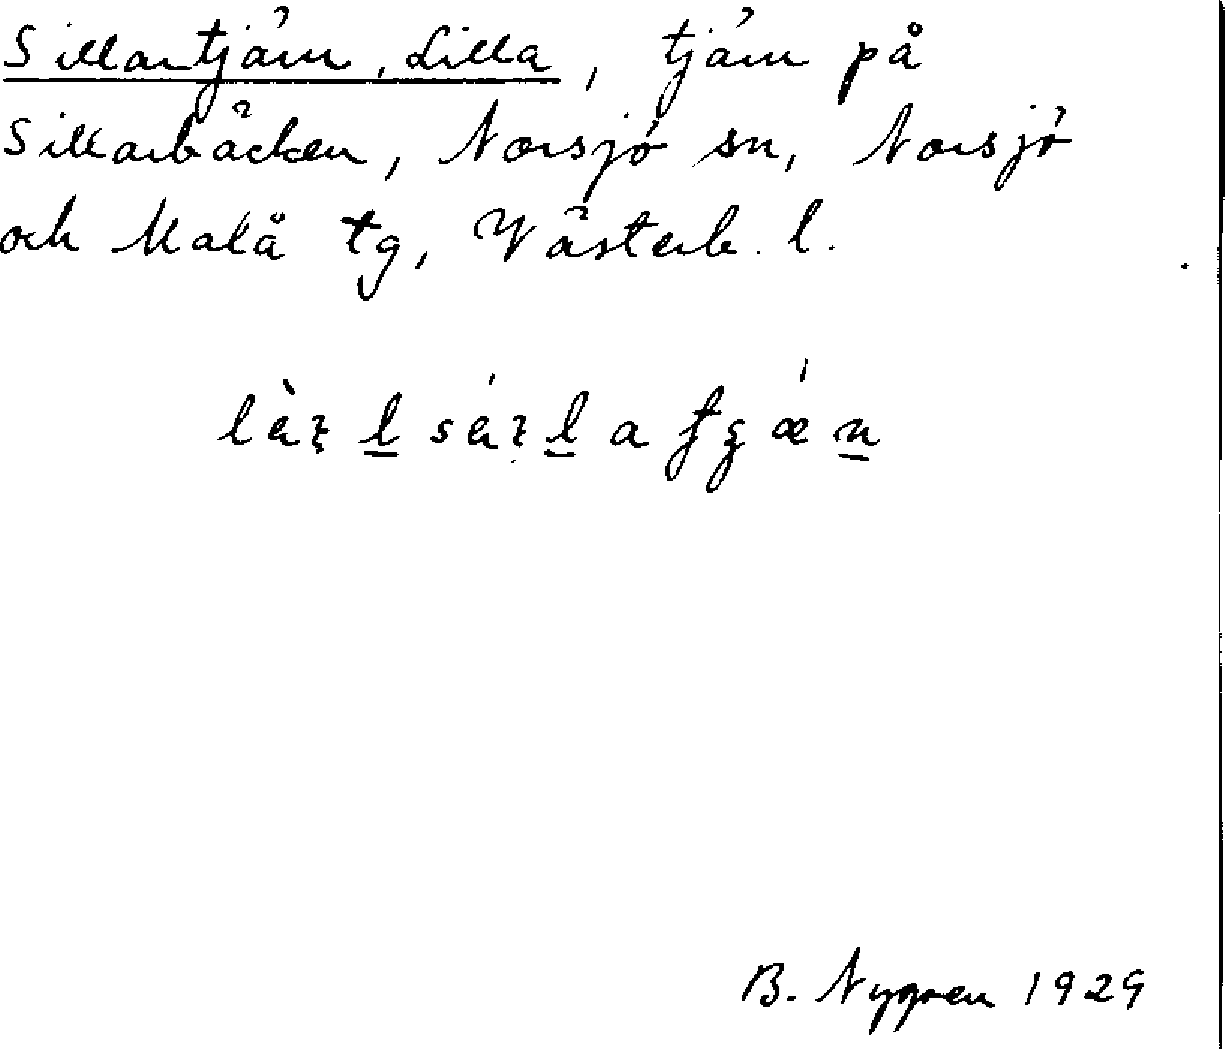 Sillartjärn, Lilla, tjärn på
Sillarbäcken, Norsjö sn, Norsjö
och Malå tg, Västerb. l.
B. Nygren 1929